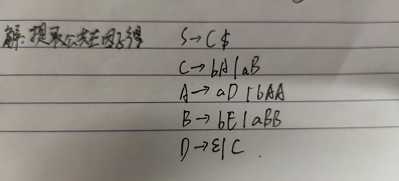 解:提取公共左因子得 S→C$
C→bA|aB
A→aD|bAA
B→bE|aBB
D→ε|C